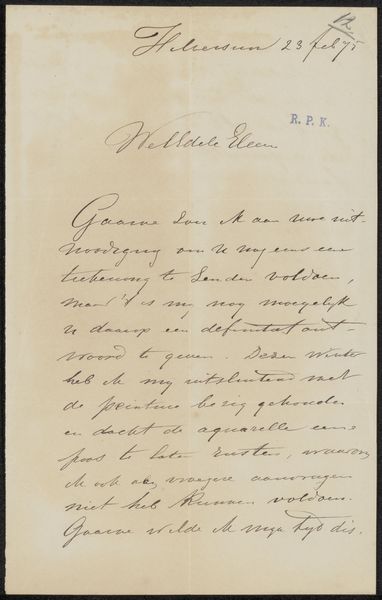 12
Hilversum 23 feb 75
R. P. K.
WelEdele Heer
Gaarne zou ik aan uwe uit-
noodiging om u nog eens eene
teekening te zenden voldoen,
maar 't is my nog moegelyk
u daarop een definitief ant-
woord te geven. Dezen Winter
heb ik my uitsluitend met
de peinture bezig gehouden
en dacht de aquarelle eene
poos te laten rusten, waarom
ik ook aan vroegere aanvragen
niet heb kunnen voldoen.
Gaarne wilde ik myn tyd dis-